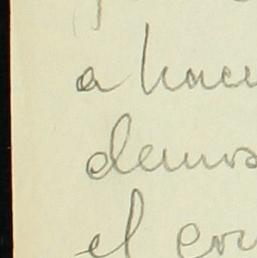 a hace
demos
el con